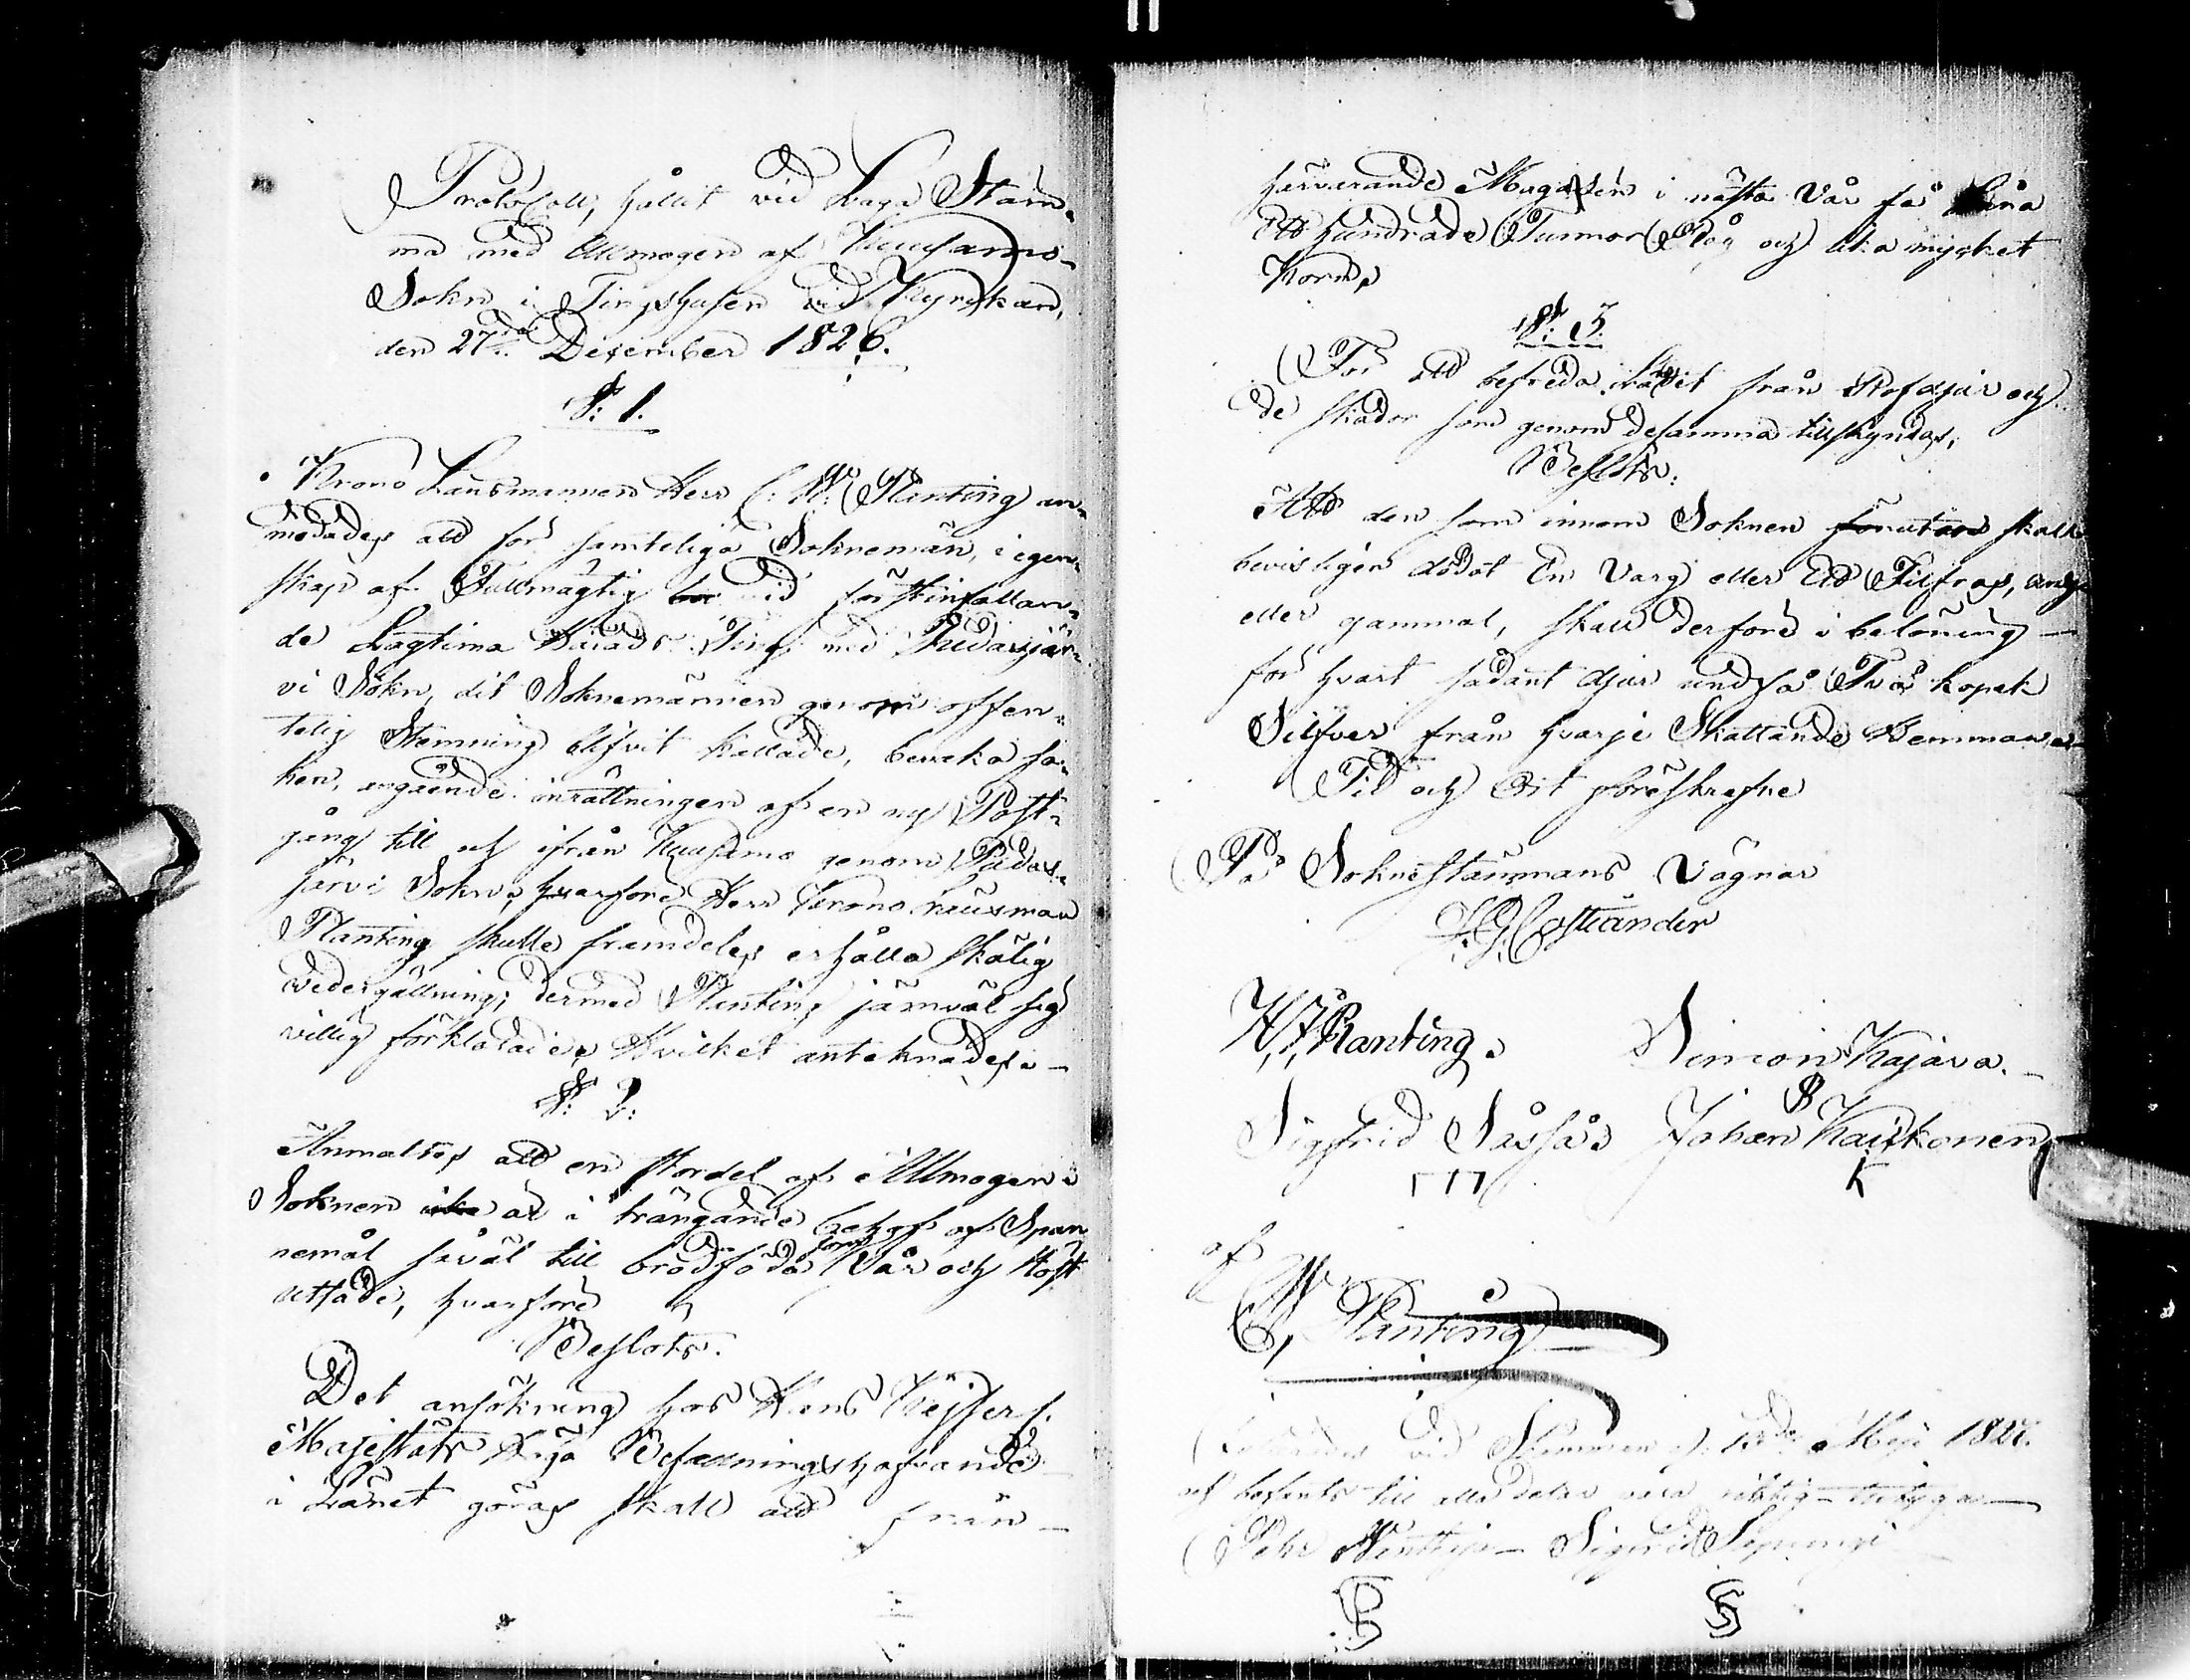 Protocoll, hållit vid Laga Stäm-
ma med Allmogen af Kuusamo
Sokn i Tingshusen vid Kyrckan,
den 27de December 1826.
§: 1.
Krono Länsmannen Herr C: W: Planting an-
modades att för samteliga Soknemän, i egen-
skap af Fullmägtig vid förstinfallan-
de Lagtima Härads Ting med Pudasjär-
vi Sokn, dit Soknemännen genom offen-
telig Stemning blifvit kallade, bevaka sa-
ken, angående inrättningen af en ny Post-
gång till och ifrån Kuusamo genom Pudas-
järvi Sokn, hvarföre Herr Krono Länsman
Planting skulle framdeles erhålla skälig
vedergällning; dermed Planting jämväl sig
villig förklarade, Hvilket anteknades.
§: 2:
Anmältes att en stor del af Allmogen i
Soknen är i trängande behof af Span-
nemål såväl till brödföda som Vår och Höst
utsäde, hvarföre
Beslöts.
Det ansökning hos Hans Kejserl.
Majestäts Höga Befallningshafvande
i Länet göras skall att från
härvarande Magasin i nästa Vår få låna
Ett hundrade Tunnor Råg och lika mycket
Korn.
§: 3.
För att befreda från Rofdjur och
de skador som genom desamma tillskyndas,
Beslöts:
Att den som innom Soknen förutan skall
bevisligen dödat En Varg eller Ett Filfras, ung
eller gammal, skall derföre i belöning
för hvart sådant djur undfå Två kopek
Silfver från hvarje Skattande Hemman.
Tid och Ort föreskrefne
På Soknestämmans Vägnar
J. G. Costiander
H. J. Planting. Simon Kajava.
Sigfrid Sassås Johan Kaikkonen
af
C W Planting
vid Stämman d. 13de Maji 1827.
och befants till alla delar vara riktig
Pehr Sigfrid